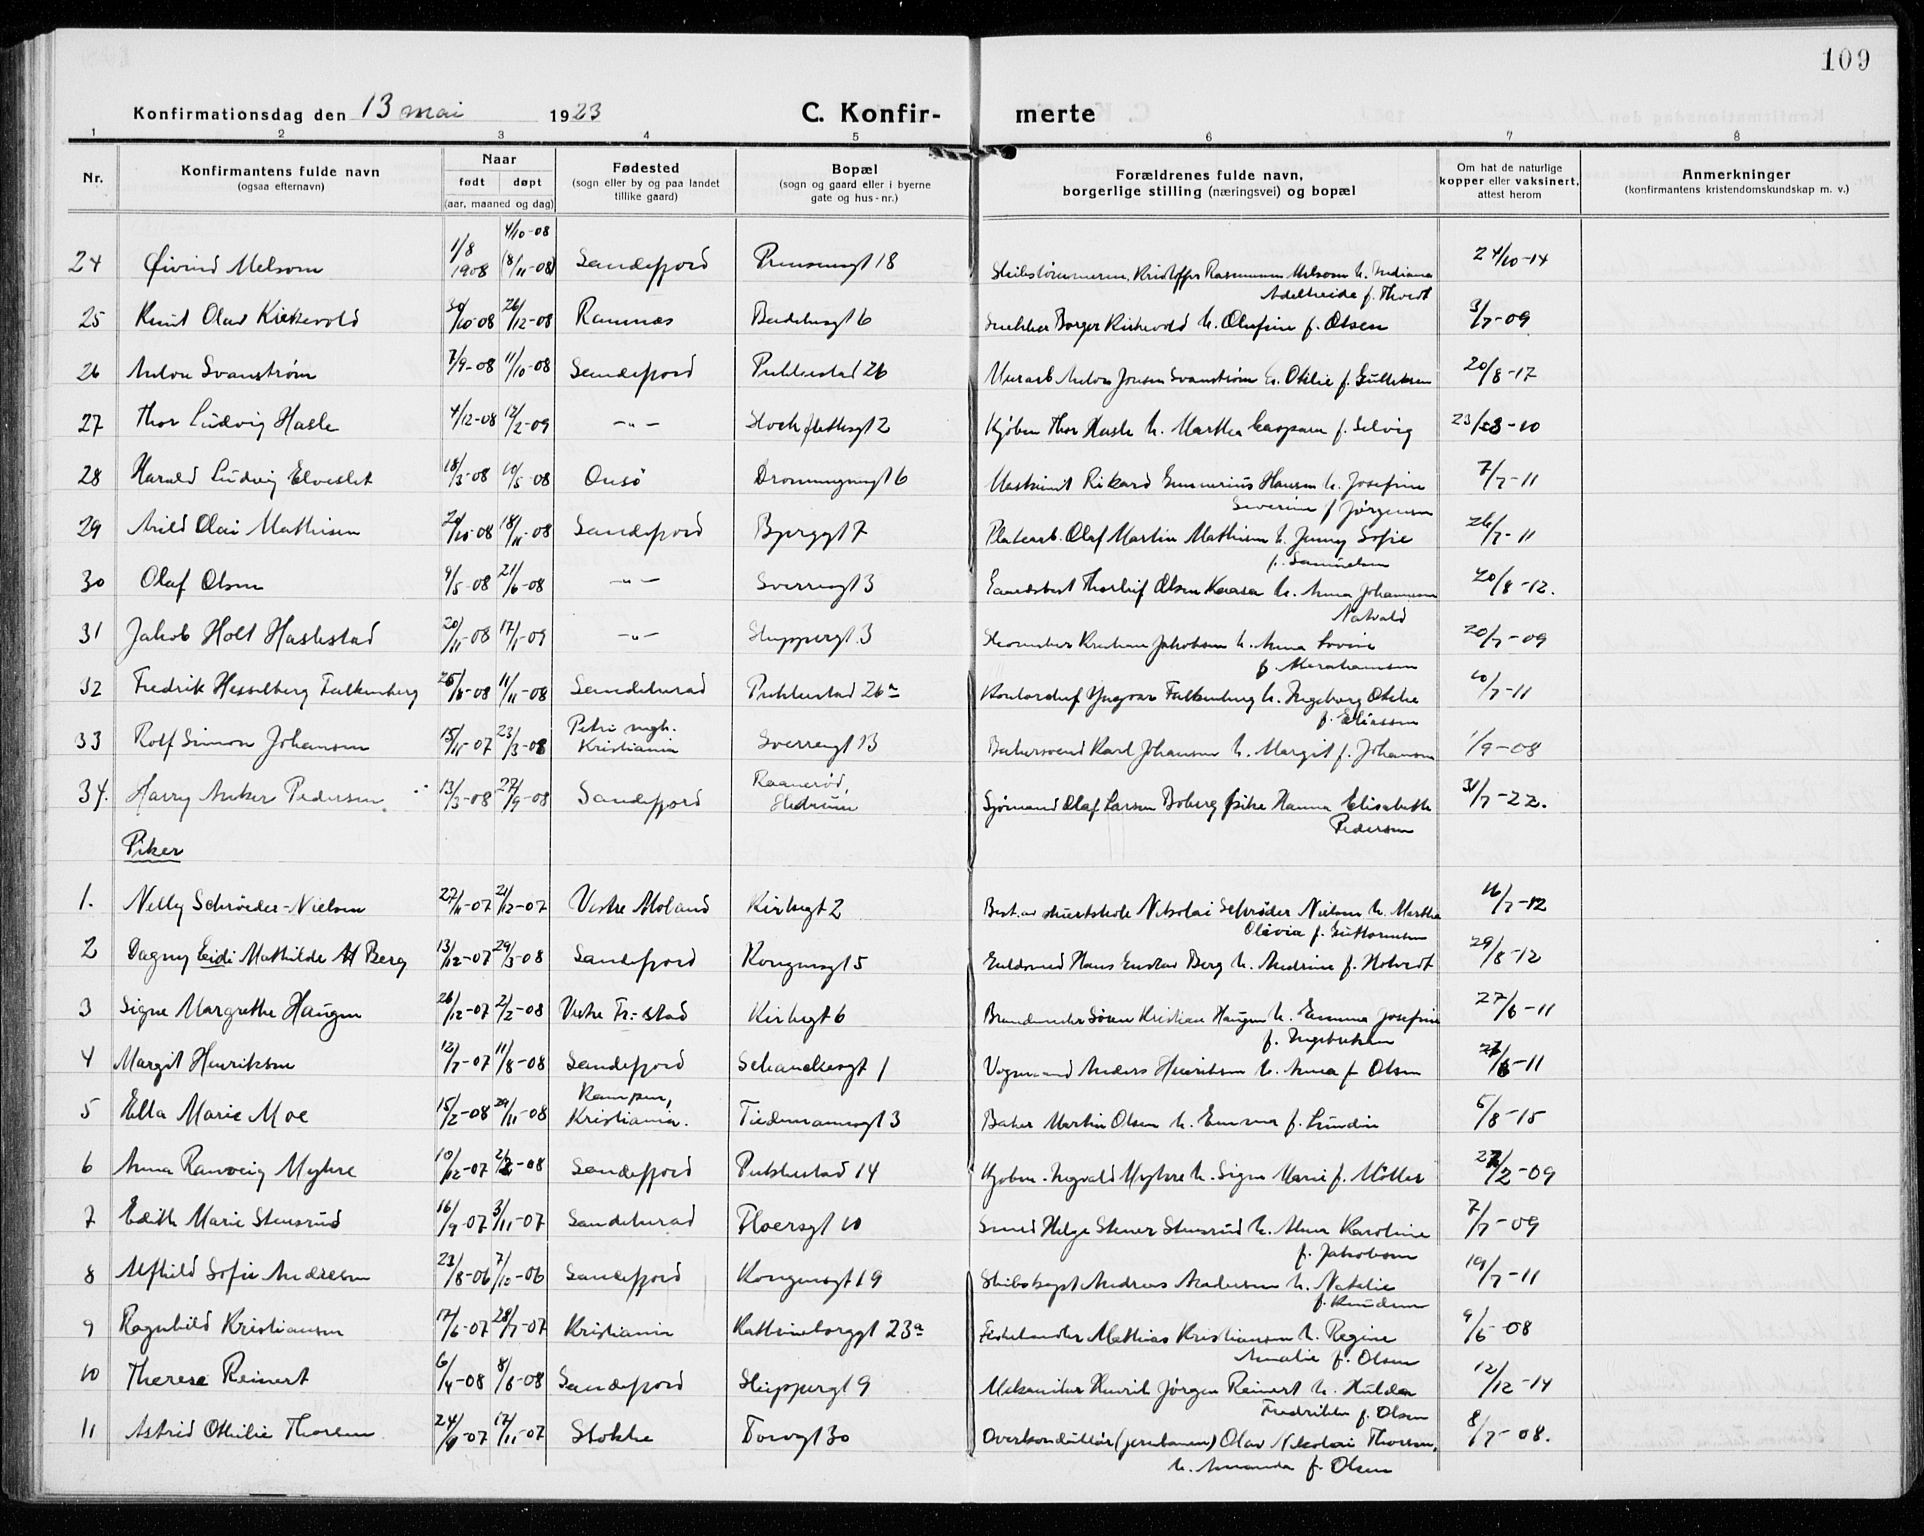 109
Konfirmationsdag den 13 mai 1923 C. Konfir- merte
1 2 3 4 5 6 7 8
Nr. Konfirmantens fulde navn (ogsaa efternavn) Naar født døpt (aar, maaned og dag) Fødested (sogn eller by og paa landet tillike gaard) Bopæl (sogn og gaard eller i byerne gate og hus-nr.) Forældrenes fulde navn, borgerlige stilling (næringsvei) og bopæl Om hat de naturlige kopper eller vaksinert, attest herom Anmerkninger (konfirmantens kristendomskundskap m. v.)
4/10-08
24 Øivind Melsom 1/8 1908 (8/11-08) Sandefjord Prinsensgt 18 Kristoffer Rasmussen Melsom h. Indiana 24/10-14
Adelheide f. Thvedt
25 Knut Olav Kirkevold 30/10-08 26/12-08 Ramnæs 6 Snekker Borger Kirkevold h. Olufine f. Olsen 3/7-09
26 Anton Svanstrøm 7/9-08 11/10-08 Sandefjord Pukkestad 26 Murarb. Anton Jonsen Svanstrøm h. Otilie f. Gulliksen 20/8-17
27 Thor Ludvig Hasle 4/12-08 12/2-09 -"- Stockflethsgt 2 Kjøbm Thor Hasle h. Martha Caspara f. Selvig 23/ -10
28 Harald Ludvig Elveslet 18/3-08 10/5-08 Onsø Dronningensgt 6 Maskinist Rikard Gunnerius Hansen h. Josefine 7/7-11
Severine f Jørgensen
29 Arild Olai Mathisen 20/10-08 18/11-08 Sandefjord Bjerggt 7 Platearb. Olaf Martin Mathisen h. Jenny Sofie 26/7-11
f. Samuelsen
30 Olaf Olsen 9/5-08 21/6-08 -"- Sverresgt 3 Gaardsbest Thorleif Olsen Kaasa h. Anna Johannesen 20/8-12.
Natvald
31 Jakob Holt Haslestad 20/11-08 17/1-09 -"- Skippergt. 3 Skomaker Kristian Jakobsen h. Anna Lovise 20/7-09
f. Abrahamsen
32 Fredrik Hesselberg Falkenberg 25/8-08 11/11-08 Sandeherad Pukkestad 26a Kontorchef Yngvar Falkenberg h. Ingeborg Otilie 10/7-11
f. Eliassen
33 Rolf Simon Johansen 15/11-07 23/3-08 Petri mgh. Kristiania Sverresgt 13 Bakersvend Karl Johansen h. Margit f. Johansen 1/9-08
34. Harry Anker Pedersen 13/3-08 27/9-08 Sandefjord Raanerød, Hedrum Sjømand Olaf Larsen Boberg pike Hanna Elisabeth 31/7-22.
Pedersen
Piker
1. Nelly Schrøder-Nielsen 27/11-07 21/12-07 Vestre Moland Kirkegt 2 Nikolai Schrøder Nielsen h. Martha 16/7-12
Olivia f. Guttormsen
2 Dagny Eidi Mathilde Berg 13/12-07 29/3-08 Sandefjord Kongensgt 5 Guldsmed Hans Gustav Berg h. Andrine f. Hotvedt 29/8-12
3 Signe Margrethe Haugen 26/12-07 2/2-08 Vestre Fr.-stad Kirkegt 6 Brandmester Søren Kristian Haugen h. Emma Josefine 27/6-11
f. Ingebretsen
4 Margit Henriksen 12/7-07 11/8-08 Sandefjord Schanchesgt 1 Vognmand Anders Henriksen h. Anna f. Olsen -11
5 Ella Marie Moe 15/2-08 29/11-08 Kampen, Kristiania. Tiedemannsgt 3 Baker Martin Olsen h. Emma f. Lundin 5/8-15
6 Anna Ranveig Myhre 10/12-07 -08 Sandefjord Pukkestad 14 Kjøbm. Ingvald Myhre h. Signe Marie f. Møller /2-09
7 Edith Marie Stensrud 16/9-07 3/11-07 Sandeherad Floersgt 10 Smed Helge Stener Stensrud h. Anna Karoline 7/7-09
f. Jakobsen
8 Alfhild Sofie Andersen 23/8-06 7/12-06 Sandefjord Kongensgt 19 Skibskapt Andreas Andersen h. Natalie 19/7-11
f. Knudsen
9 Ragnhild Kristiansen 17/6-07 28/7-07 Kristiania Kathrineborggt 23a Fiskehandler Mathias Kristiansen h. Regine 9/6-08
Amalie f. Olsen
10 Therese Reinert 6/4-08 8/6-08 Sandefjord Skippergt 9 Mekaniker Henrik Jørgen Reinert h. Hulda 12/12-14
Fredrikke f. Olsen
11 Astrid Othilie Thorsen 24/9-07 17/11-07 Stokke Torvgt 30 Overkonduktør (jernbanen) Olav Nikolai Thorsen, 8/7-08.
h. Amanda f. Olsen